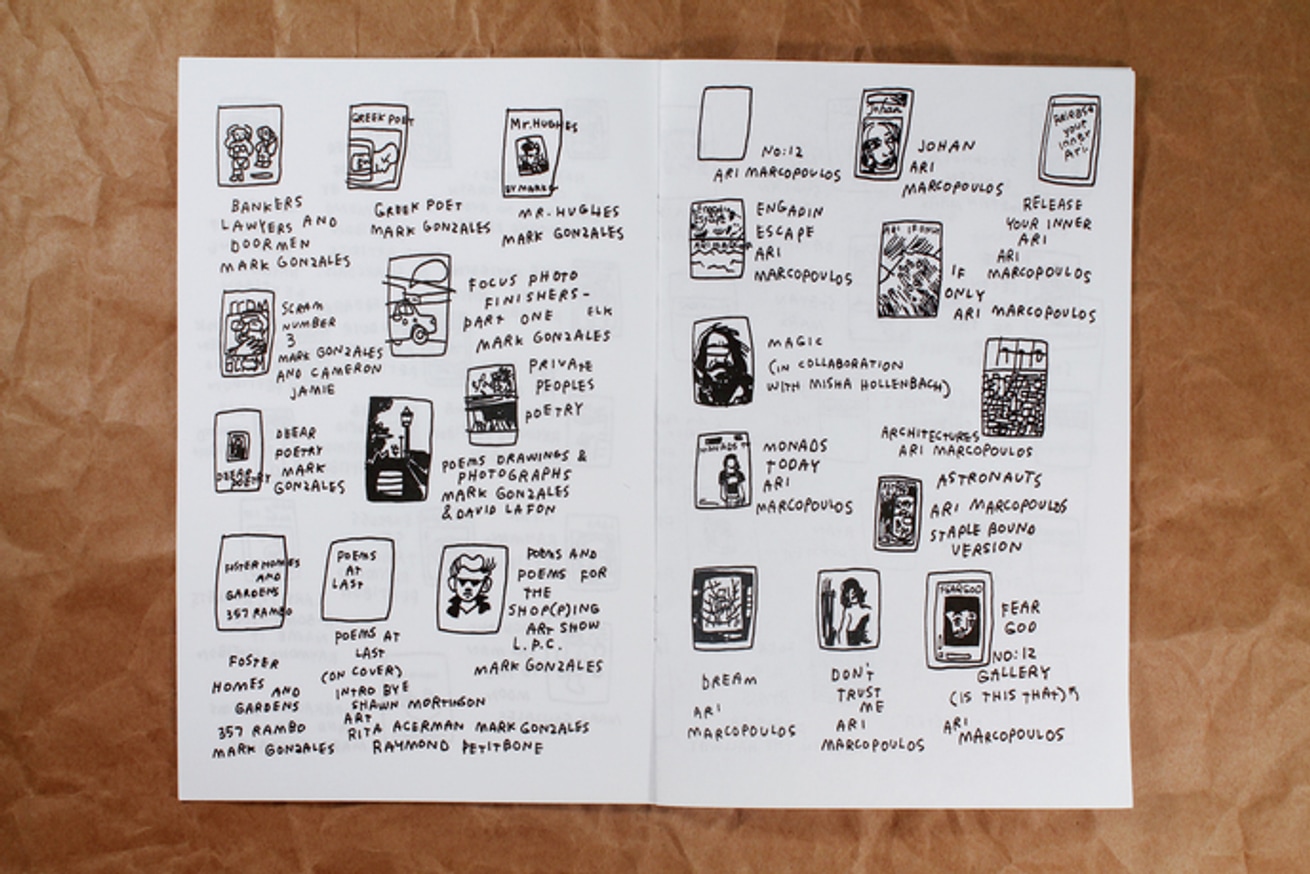 GREEK POET
Mr. HUGHES
BY MARK
BANKERS
LAWYERS AND
DOORMEN
MARK GONZALES
GREEK POET
MARK GONZALES
MR. HUGHES
MARK GONZALES
SCRAM
NUMBER
3
MARK GONZALES
AND CAMERON
JAMIE
FOCUS PHOTO
FINISHERS-
PART ONE ELK
MARK GONZALES
PRIVATE
PEOPLES
POETRY
DEEAR
POETRY
DEEAR
POETRY
MARK
GONZALES
POEMS DRAWINGS &
PHOTOGRAPHS
MARK GONZALES
& DAVID LAFON
FOSTER HOMES
AND
GARDENS
357 RAMBO
FOSTER
HOMES AND
GARDENS
357 RAMBO
MARK GONZALES
POEMS
AT
LAST
POEMS AT
LAST
(ON COVER)
INTRO BYE
SHAWN MORTINSON
ART
RITA ACERMAN MARK GONZALES
RAYMOND PETITBONE
POEMS AND
POEMS FOR
THE
SHOP(P)ING
ART SHOW
L.P.C.
MARK GONZALES
NO:12
ARI MARCOPOULOS
Johan
JOHAN
ARI
MARCOPOULOS
RELEASE
your
inner
Ari
RELEASE
YOUR INNER
ARI
ARI
MARCOPOULOS
Engadin
Escape
ENGADIN
ESCAPE
ARI
MARCOPOULOS
IF
ONLY
ARI MARCOPOULOS
MAGIC
(IN COLLABORATION
WITH MISHA HOLLENBACH)
ARCHITECTURES
ARI MARCOPOULOS
MONADS
MONADS
TODAY
ARI
MARCOPOULOS
ASTRONAUTS
ARI MARCOPOULOS
STAPLE BOUND
VERSION
DREAM
ARI
MARCOPOULOS
DON'T
TRUST
ME
ARI
MARCOPOULOS
FEARGOO
FEAR
GOO
NO:12
GALLERY
(IS THIS THAT)
ARI
MARCOPOULOS